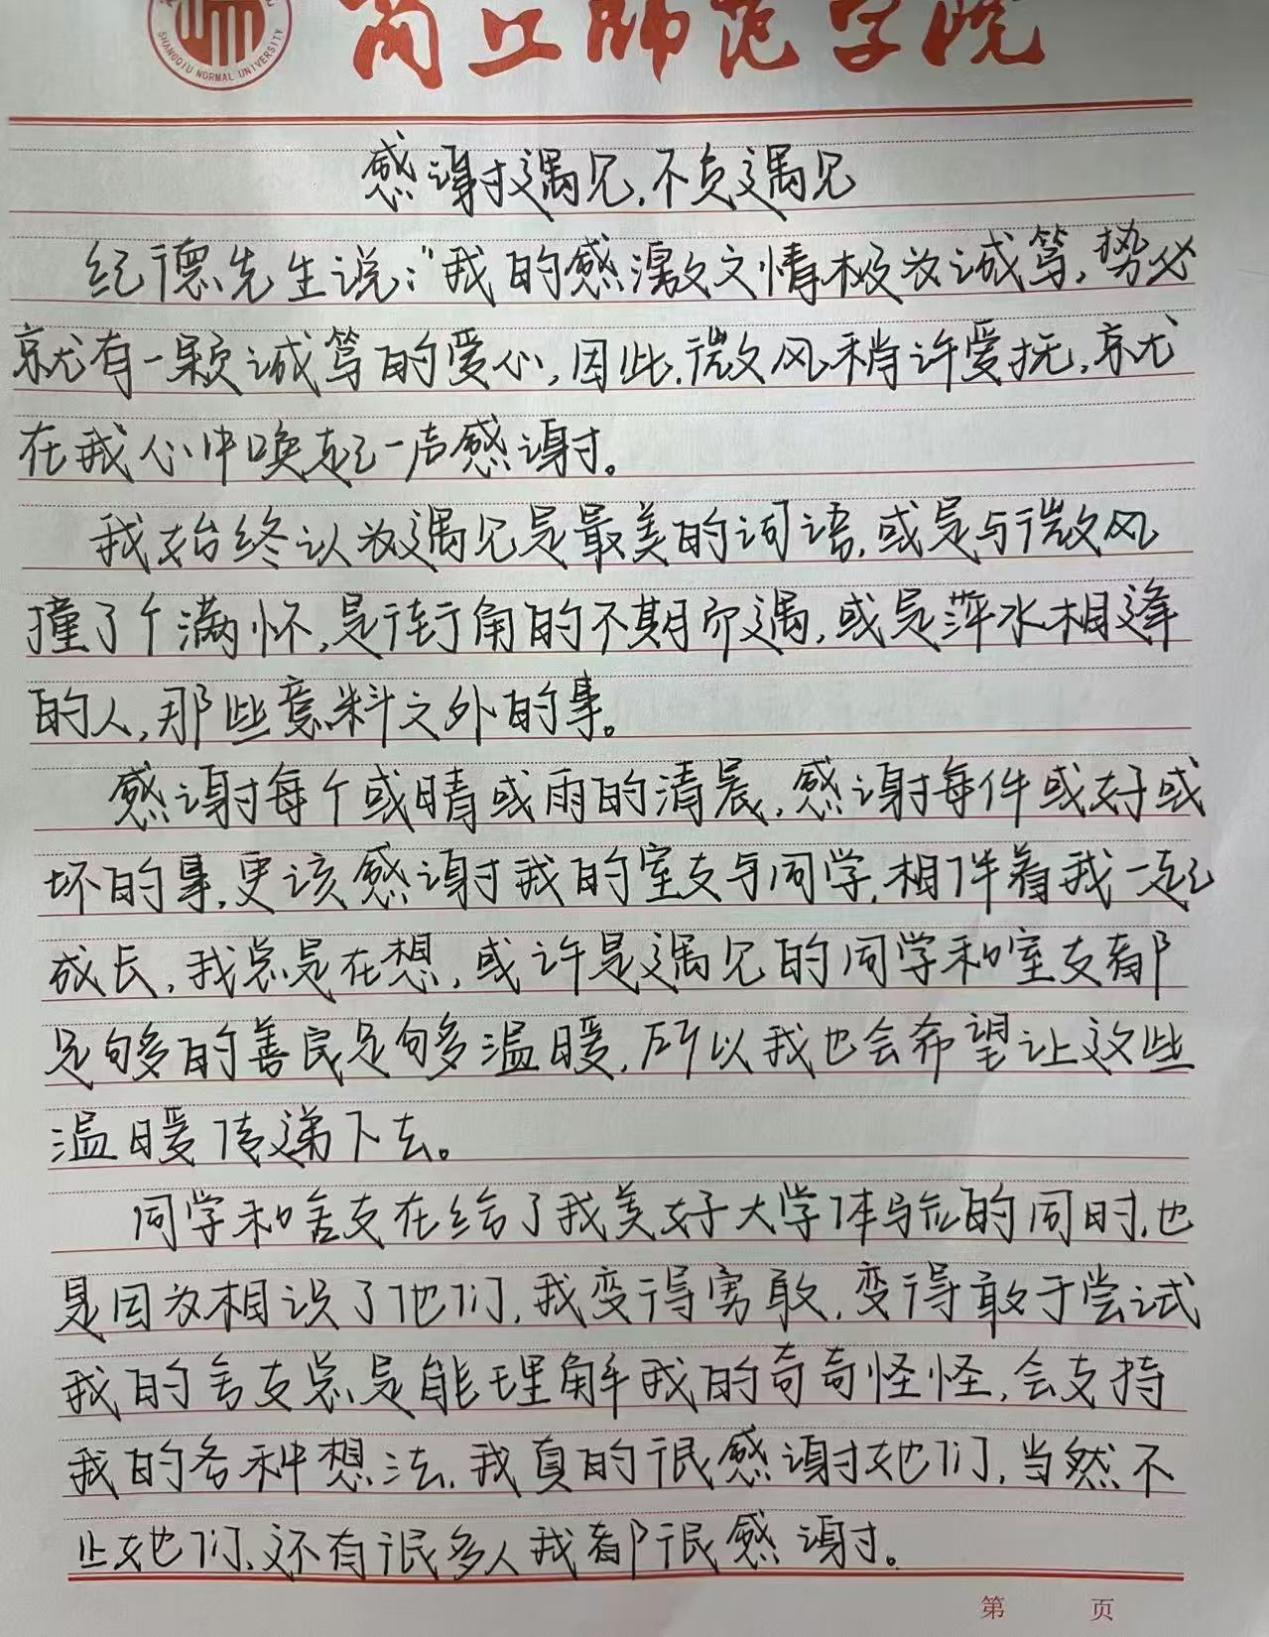 SHANGQIU NORMAL UNIVERSITY
商丘师范学院
感谢遇见,不负遇见
纪德先生说:“我的感激文情极为诚笃,势必
就有一颗诚笃的爱心,因此,微风稍许爱抚,就
在我心中唤起一声感谢。
我始终认为遇见是最美的词语,或是与微风
撞了个满怀,是街角的不期而遇,或是萍水相逢
的人,那些意料之外的事。
感谢每个或晴或雨的清晨,感谢每件或好或
坏的事,更该感谢我的室友与同学,相伴着我一起
成长,我总是在想,或许是遇见的同学和室友都
足够的善良足够温暖,所以我也会希望让这些
温暖传递下去。
同学和舍友在给了我美好大学体验的同时,也
是因为相识了他们,我变得勇敢,变得敢于尝试
我的舍友总是能理解我的奇奇怪怪,会支持
我的各种想法,我真的很感谢她们,当然不
止她们,还有很多人我都很感谢。
第 页